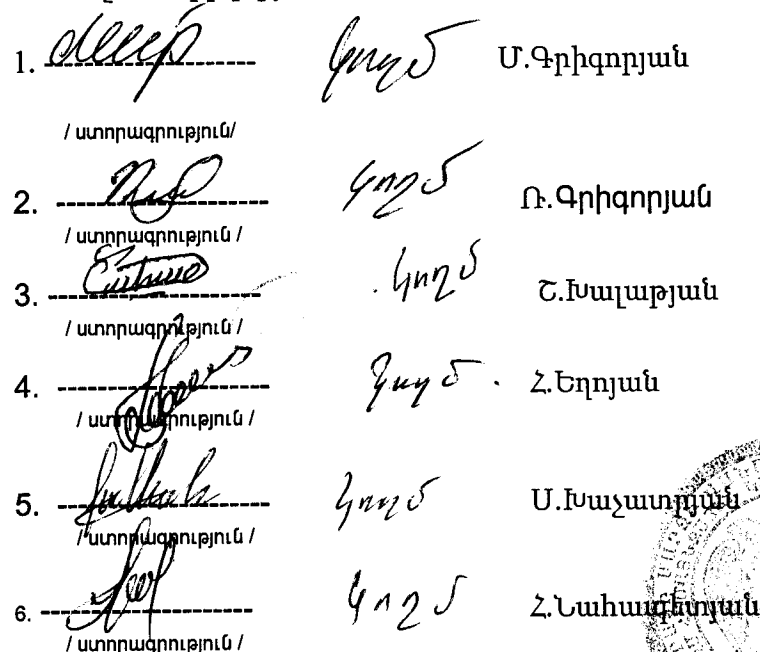 1. կողմ Մ.Գրիգորյան
/ ստորագրություն/
2. կողմ Ռ.Գրիգորյան
/ ստորագրություն /
3. կողմ Շ.Խալաթյան
/ ստորագրություն /
4. կողմ Հ.Եղոյան
/ ստորագրություն /
5. կողմ Ս.Խաչատրյան
/ ստորագրություն /
6. կողմ Հ.Նահապետյան
/ ստորագրություն /